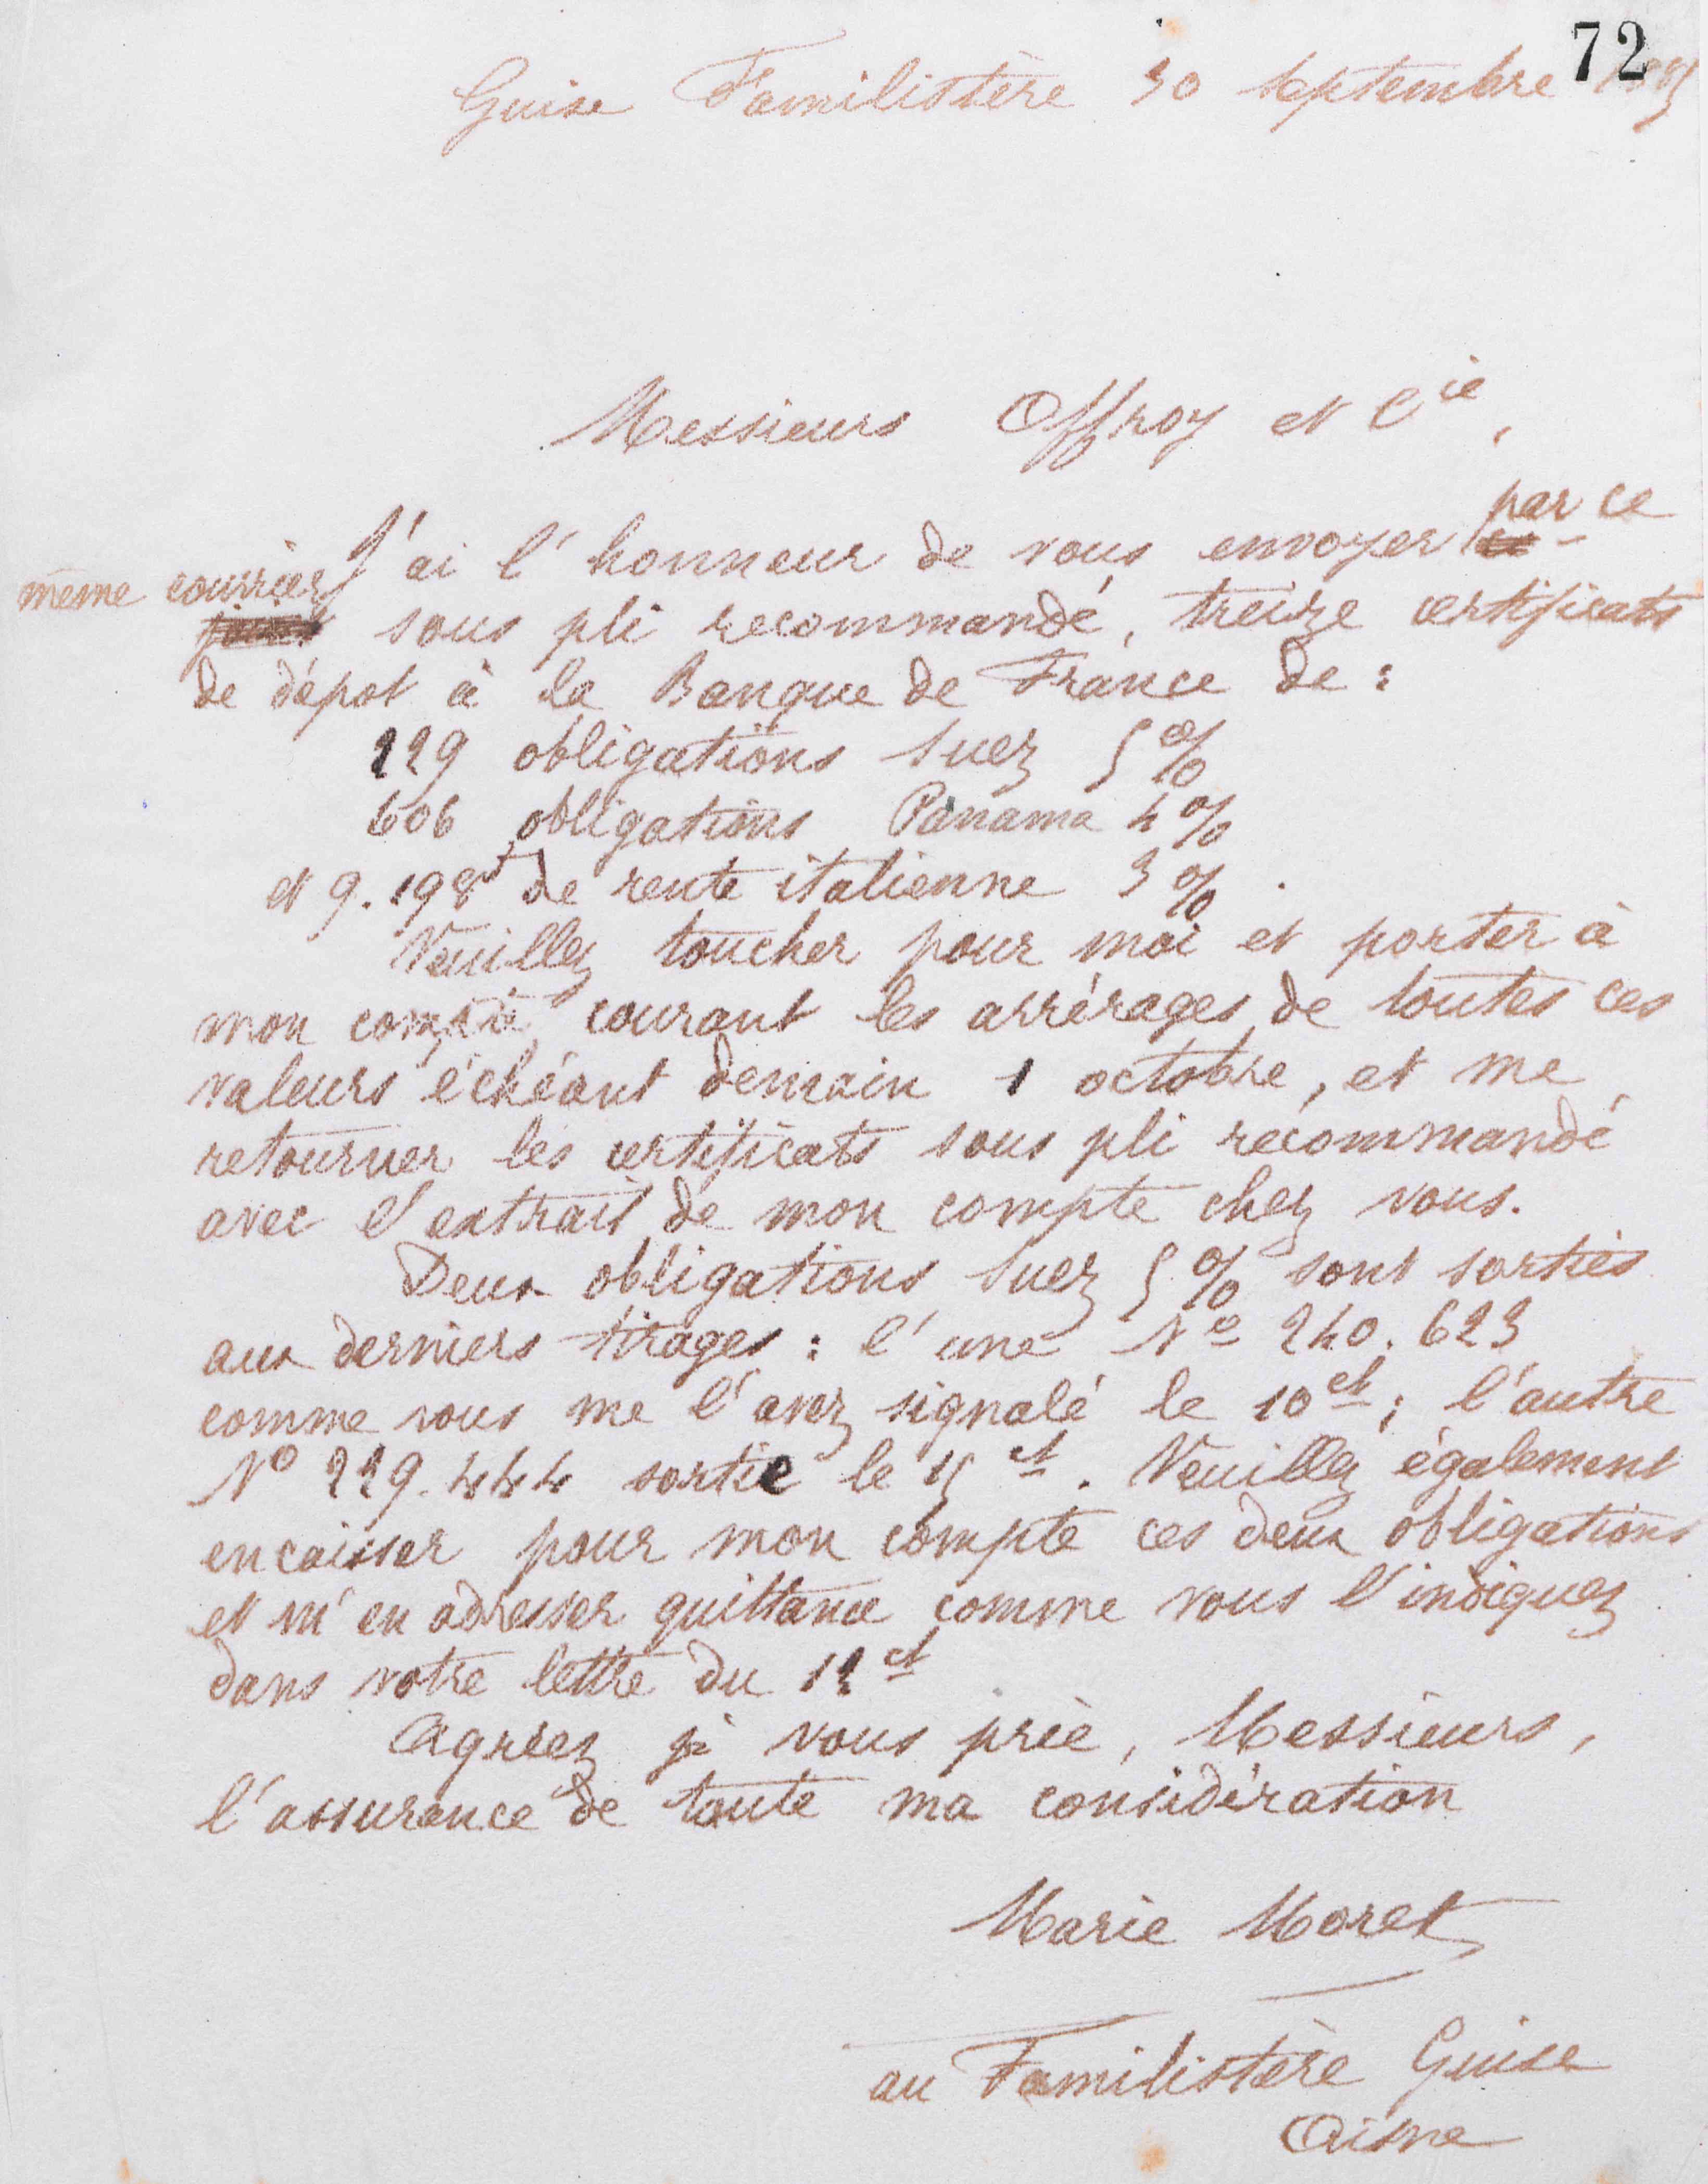 72
Guise Familistère 30 septembre
Messieurs Offroy et Cie,
J'ai l'honneur de vous envoyer par ce
même courrier sous pli recommandé, treize certificats
de dépot à la Banque de France de :
229 obligations Suez 5 %
606 obligations Panama 4 %
et 9.198f de rente italienne 3 %.
Veuillez toucher pour moi et porter à
mon compte courant les arrérages de toutes ces
valeurs échéant demain 1 octobre, et me
retourner les certificats sous pli recommandé
avec l'extrait de mon compte chez vous.
Deux obligations Suez 5 % sont sorties
aux derniers tirages : l'une No 240.623
comme vous me l'avez signalé le 10 ct ; l'autre
No 229.444 sortie le 15 ct. Veuillez également
encaisser pour mon compte ces deux obligations
et m'en adresser quittance comme vous l'indiquez
dans votre lettre du 12 ct
Agréez je vous prie, Messieurs,
l'assurance de toute ma considération
Marie Moret
au Familistère Guise
Aisne